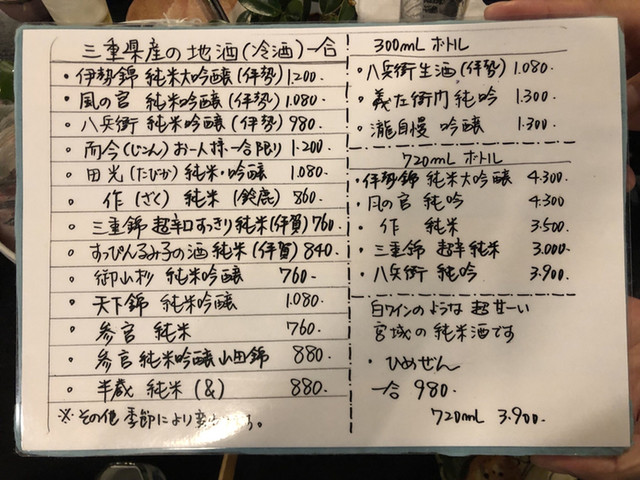 三重県産の地酒(冷酒)一合
・伊勢錦 純米大吟醸(伊勢) 1.200-
・風の宮 純米吟醸(伊勢) 1.080-
・八兵衛 純米吟醸(伊勢) 980-
・而今(じこん)お一人様一合限り 1.200-
・田光(たびか)純米・吟醸 1.080-
・作(ざく)純米(鈴鹿) 860-
・三重錦 超辛口すっきり純米(伊賀) 760-
・すっぴんるみ子の酒 純米(伊賀) 840-
・御山杉 純米吟醸 760-
・天下錦 純米吟醸 1.080-
・参宮 純米 760-
・参宮 純米吟醸 山田錦 880-
・半蔵 純米(&) 880-
※その他 季節により
300mL ボトル
・八兵衛生酒(伊勢) 1.080-
・義左衛門 純吟 1.300-
・瀧自慢 吟醸 1.300-
720mL ボトル
・伊勢錦 純米大吟醸 4.300-
・風の宮 純吟 4.300
・作 純米 3.500-
・三重錦 超辛 純米 3.000-
・八兵衛 純吟 3.900-
白ワインのような 超 甘ーい
宮城の純米酒です
・ひめぜん
一合 980-
720mL 3.900-